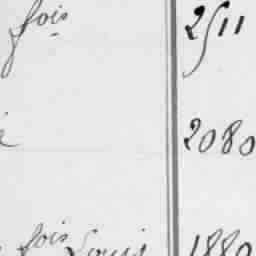 fois 2511
2080
fois Louis 1880